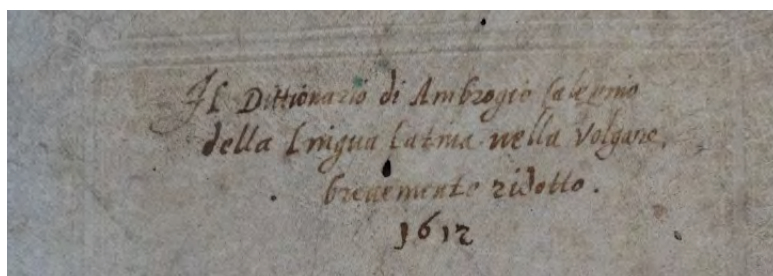 Il Dittionario di Ambrogio Calepino
della Lingua Latina nella Volgare,
brevemente ridotto.
1612